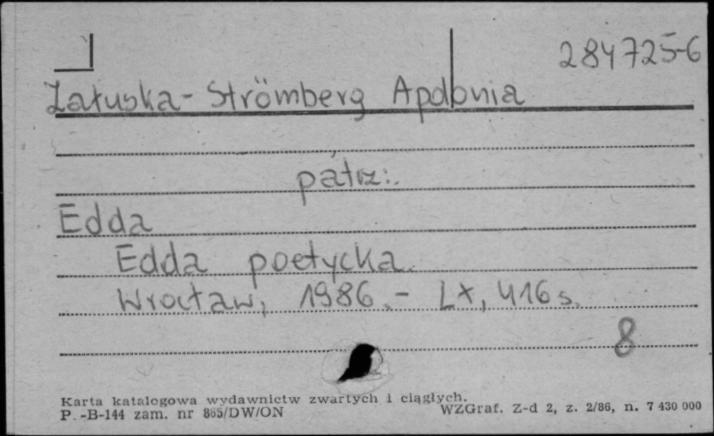 284725-6
Załuska-Strömberg Apolonia
patrz:
Edda
Edda poetycka.
Wrocław, 1986.- LX, 416 s.
8
Karta katalogowa wydawnictw zwartych i ciągłych.
P.-B-144 zam. nr 865/DW/ON WZGraf. Z-d 2, z. 2/86, n. 7 430 000